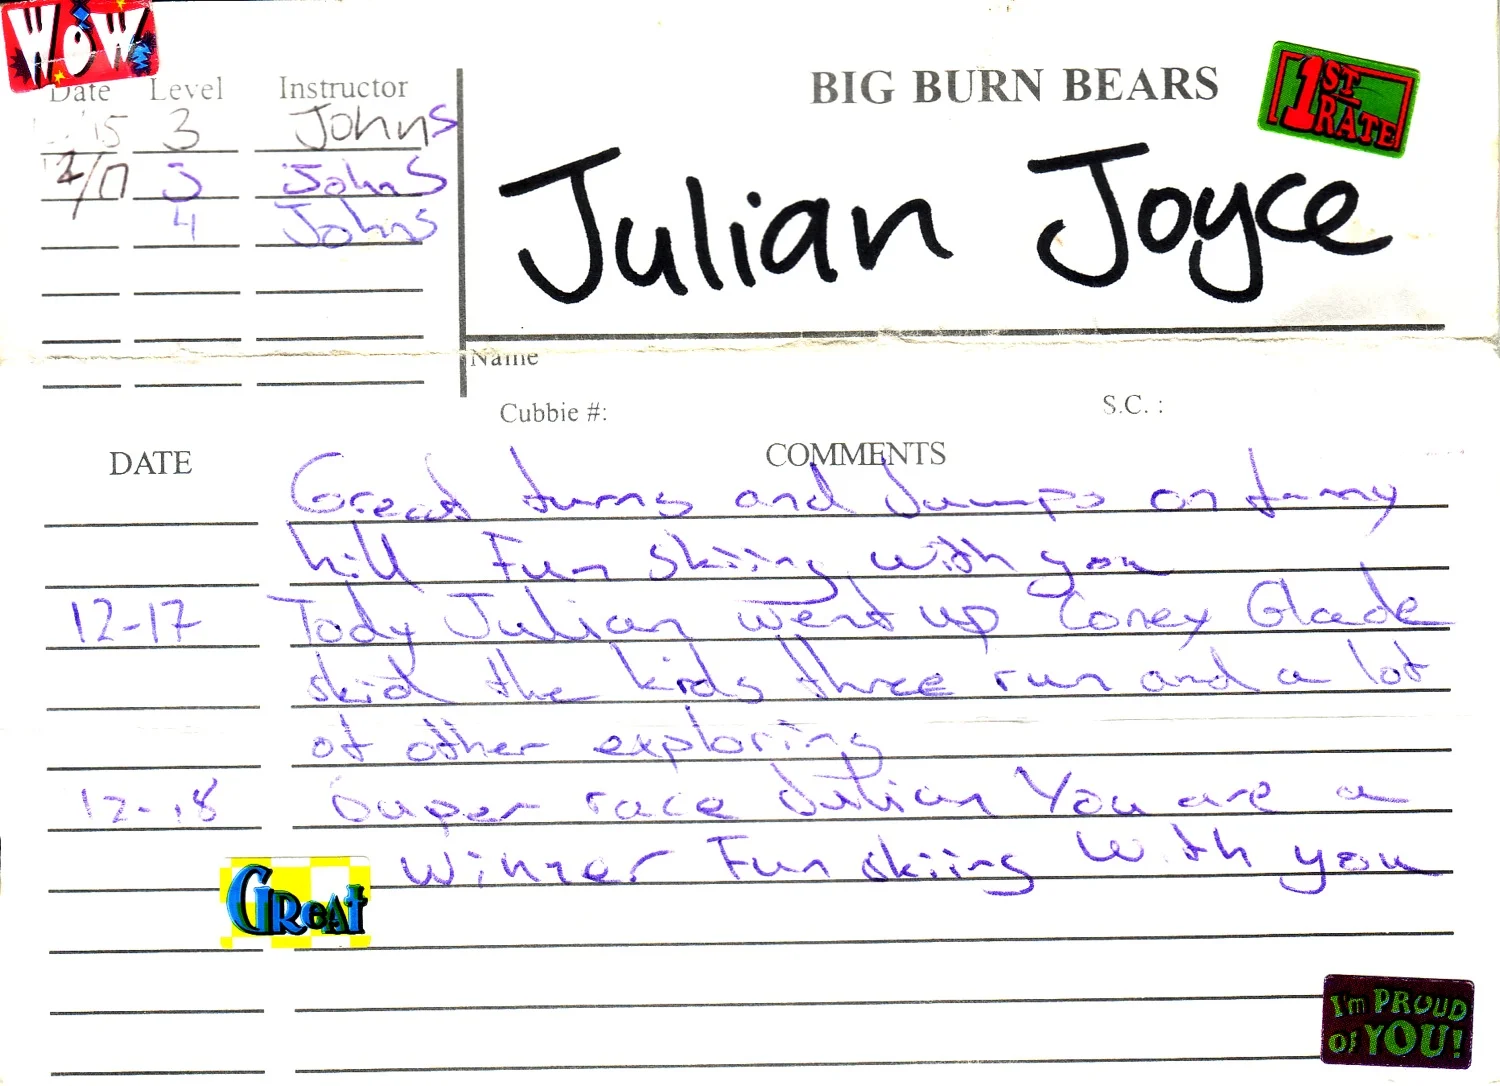 WOW
BIG BURN BEARS
1ST RATE
Date Level Instructor
15 3 Johns
/17 3 Johns
4 Johns
Julian Joyce
Name
Cubbie #:
S.C. :
DATE COMMENTS
Great turns and Jumps on
hill Fun skiing with you
12-17 Tody Julian went up Coney Glade
skid the kids three run and a lot
of other exploring
12-18 Super race Julian You are a
winner Fun skiing With you
GREAT
I'm PROUD
of YOU!